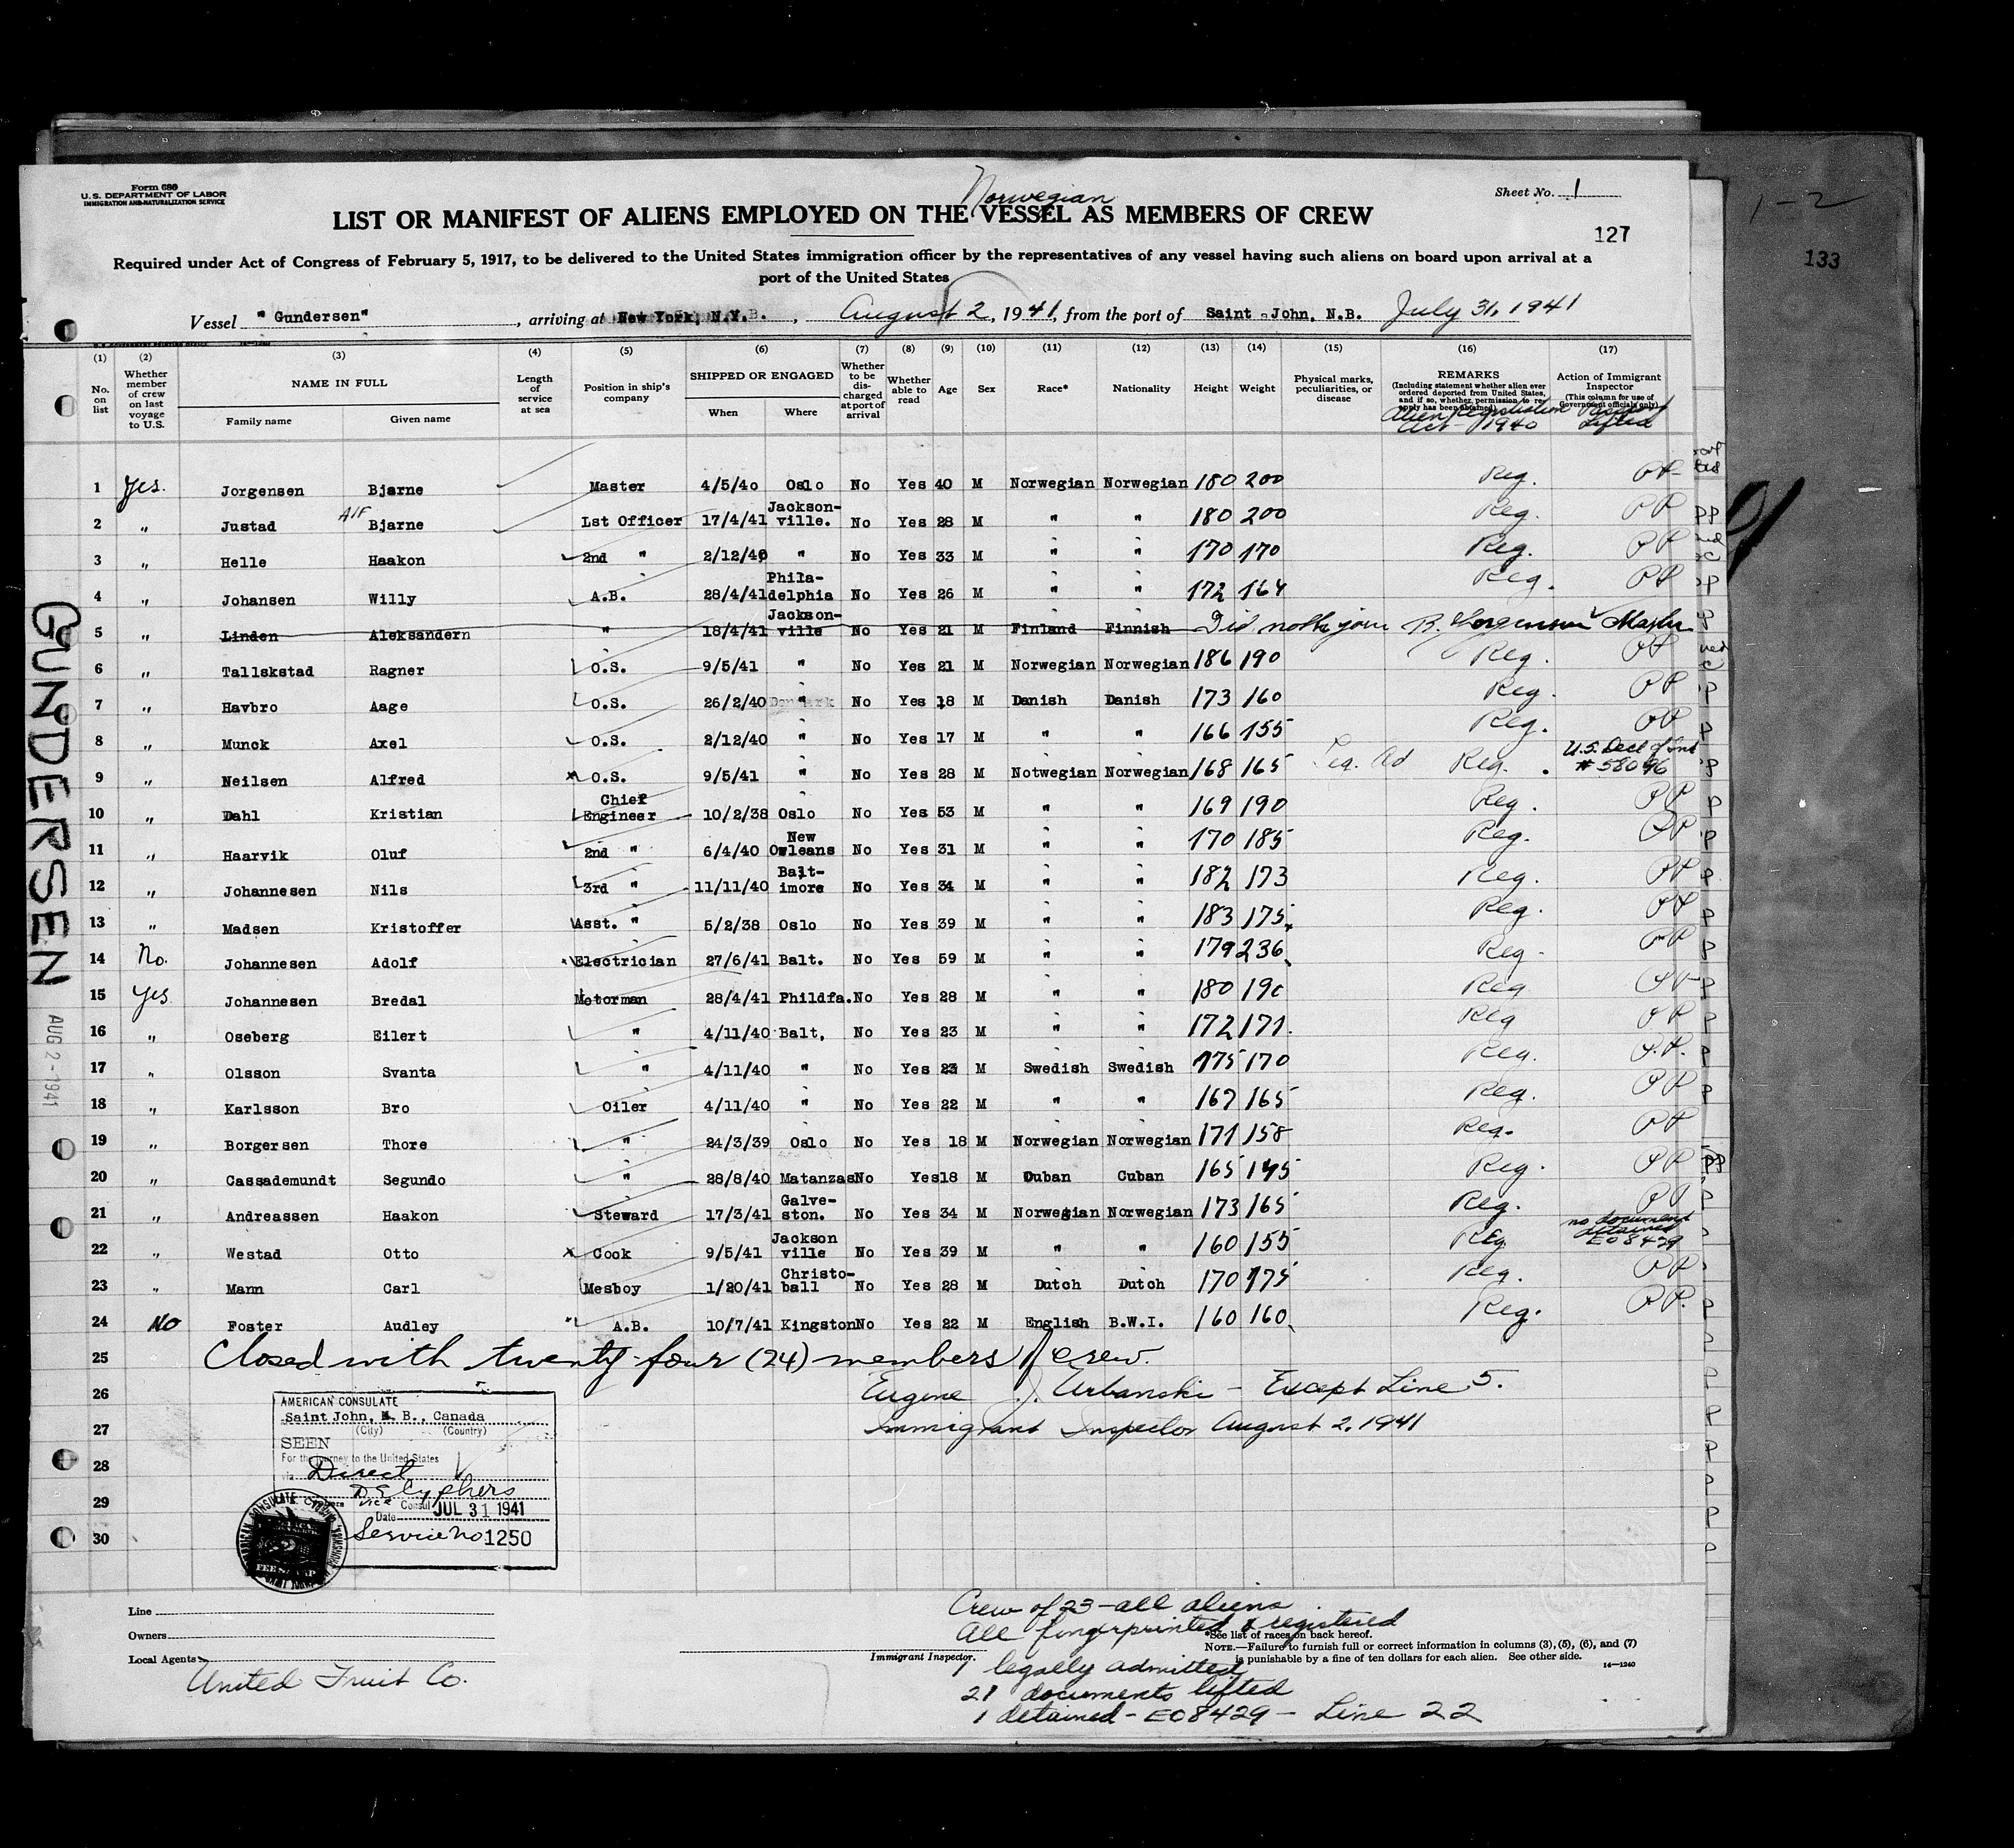 Form 680
U.S. DEPARTMENT OF LABOR
IMMIGRATION AND NATURALIZATION SERVICE
Norwegian
Sheet No. 1
LIST OR MANIFEST OF ALIENS EMPLOYED ON THE VESSEL AS MEMBERS OF CREW
127
1-2
133
Required under Act of Congress of February 5, 1917, to be delivered to the United States immigration officer by the representatives of any vessel having such aliens on board upon arrival at a
port of the United States
Vessel "Gundersen", arriving at New York, N.Y., August 2, 1941, from the port of Saint John, N.B. July 31, 1941
(1) (2) (3) (4) (5) (6) (7) (8) (9) (10) (11) (12) (13) (14) (15) (16) (17)
No. on list
Whether member of crew on last voyage to U.S.
NAME IN FULL
Family name Given name
Length of service at sea
Position in ship's company
SHIPPED OR ENGAGED
When Where
Whether to be discharged at port of arrival
Whether able to read
Age
Sex
Race*
Nationality
Height
Weight
Physical marks, peculiarities, or disease
REMARKS
(Including statement whether alien ever ordered deported from United States, and if so, whether permission to reapply has been obtained)
Alien Registration Act 1940
Action of Immigrant Inspector
(This column for use of Government officials only)
Passport Lifted
1 Yes. Jorgensen Bjarne Master 4/5/40 Oslo No Yes 40 M Norwegian Norwegian 180 200 Reg. PP
2 " Justad Bjarne 1st Officer 17/4/41 Jackson-ville. No Yes 28 M " " 180 200 Reg. PP
3 " Helle Haakon 2nd " 2/12/40 " No Yes 33 M " " 170 170 Reg. PP
4 " Johansen Willy A.B. 28/4/41 Phila-delphia No Yes 26 M " " 172 164 Reg. PP
5 " Linden Aleksandern " 18/4/41 Jackson-ville No Yes 21 M Finland Finnish Did not join B. Jorgensen Master
6 " Tallskstad Ragner O.S. 9/5/41 " No Yes 21 M Norwegian Norwegian 186 190 Reg. PP
7 " Havbro Aage O.S. 26/2/40 " No Yes 18 M Danish Danish 173 160 Reg. PP
8 " Munck Axel O.S. 2/12/40 " No Yes 17 M " " 166 155 Reg. PP
9 " Neilsen Alfred x O.S. 9/5/41 " No Yes 28 M Notwegian Norwegian 168 165 Leg. Ad Reg. U.S. Decl of Int # 58096
10 " Dahl Kristian Chief Engineer 10/2/38 Oslo No Yes 53 M " " 169 190 Reg. PP
11 " Haarvik Oluf 2nd " 6/4/40 New Orleans No Yes 31 M " " 170 185 Reg. PP
12 " Johannesen Nils 3rd " 11/11/40 Balt-imore No Yes 34 M " " 182 173 Reg. PP
13 " Madsen Kristoffer Asst. " 5/2/38 Oslo No Yes 39 M " " 183 175 Reg. PP
14 No. Johannesen Adolf Electrician 27/6/41 Balt. No Yes 59 M " " 179 236 Reg. PP
15 Yes Johannesen Bredal Motorman 28/4/41 Phildfa. No Yes 28 M " " 180 190 Reg PP
16 " Oseberg Eilert " 4/11/40 Balt. No Yes 23 M " " 172 171 Reg PP
17 " Olsson Svanta " 4/11/40 " No Yes 23 M Swedish Swedish 175 170 Reg. P.P.
18 " Karlsson Bro Oiler 4/11/40 " No Yes 22 M " " 167 165 Reg. PP
19 " Borgersen Thore " 24/3/39 Oslo No Yes 18 M Norwegian Norwegian 171 158 Reg. PP
20 " Cassademundt Segundo " 28/8/40 Matanzas No Yes 18 M Cuban Cuban 165 145 Reg. PP
21 " Andreassen Haakon Steward 17/3/41 Galve-ston. No Yes 34 M Norwegian Norwegian 173 165 Reg. PP
22 " Westad Otto x Cook 9/5/41 Jackson ville No Yes 39 M " " 160 155 Reg no document detained E08429
23 " Mann Carl Mesboy 1/20/41 Christo-ball No Yes 28 M Dutch Dutch 170 175 Reg. PP
24 No Foster Audley A.B. 10/7/41 Kingston No Yes 22 M English B.W.I. 160 160 Reg. PP.
25 Closed with twenty-four (24) members of crew.
26 Eugene J. Urbanski - Except Line 5.
27 Immigrant Inspector August 2, 1941
28
29
30
AMERICAN CONSULATE
Saint John, N. B., Canada
(City) (Country)
SEEN
For the journey to the United States
via Direct
Vice Consul
Date JUL 31 1941
Service No 1250
GUNDERSEN
AUG 2-1941
Line
Owners
Local Agents
United Fruit Co.
Immigrant Inspector.
Crew of 23-all aliens
All fingerprinted & registered
1 legally admitted
21 documents lifted
1 detained - E08429 - Line 22
*See list of races on back hereof.
NOTE.—Failure to furnish full or correct information in columns (3), (5), (6), and (7)
is punishable by a fine of ten dollars for each alien. See other side.
14-1240